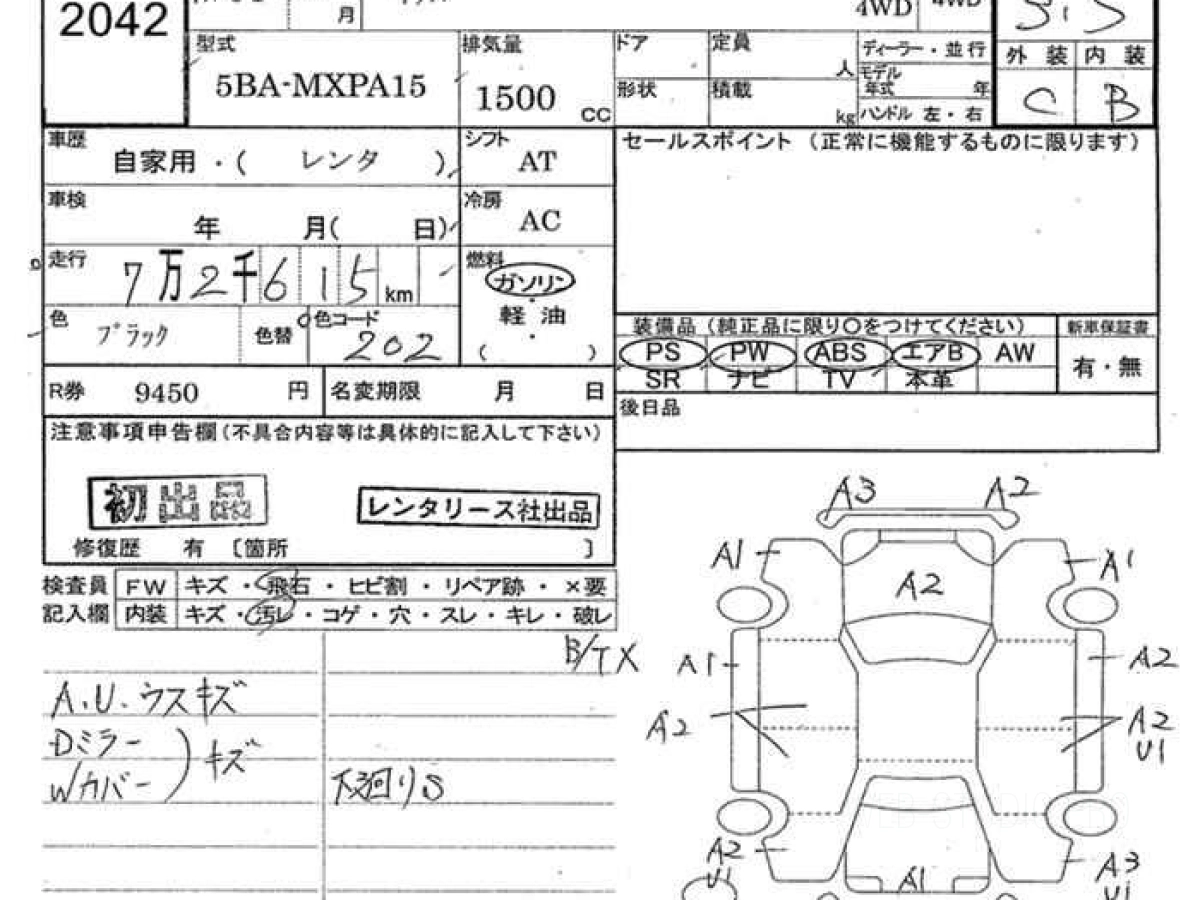 2042
月
4WD
型式
5BA-MXPA15
排気量
1500 cc
ドア
定員 人
形状
積載 kg
ディーラー・並行
モデル年式 年
ハンドル 左・右
外装 内装
C B
車歴
自家用・( レンタ )
シフト
AT
セールスポイント (正常に機能するものに限ります)
車検
年 月( 日)
冷房
AC
走行
7万2千615km
燃料
ガソリン
軽油
( ・ )
色
ブラック
色替
色コード
202
装備品 (純正品に限り〇をつけてください)
新車保証書
PS PW ABS エアB AW
SR ナビ TV 本革
有・無
R券 9450 円
名変期限 月 日
後日品
注意事項申告欄(不具合内容等は具体的に記入して下さい)
初出品
レンタリース社出品
修復歴 有 〔箇所 〕
検査員記入欄
FW キズ・飛石・ヒビ割・リペア跡・×要
内装 キズ・汚レ・コゲ・穴・スレ・キレ・破レ
B/TX
A.U.ウスキズ
Dミラー
Wカバー
キズ
下廻りS
A3 A2
A1 A2 A1
A1 A2
A2 A2
U1
A2 A1 A3
U1 U1